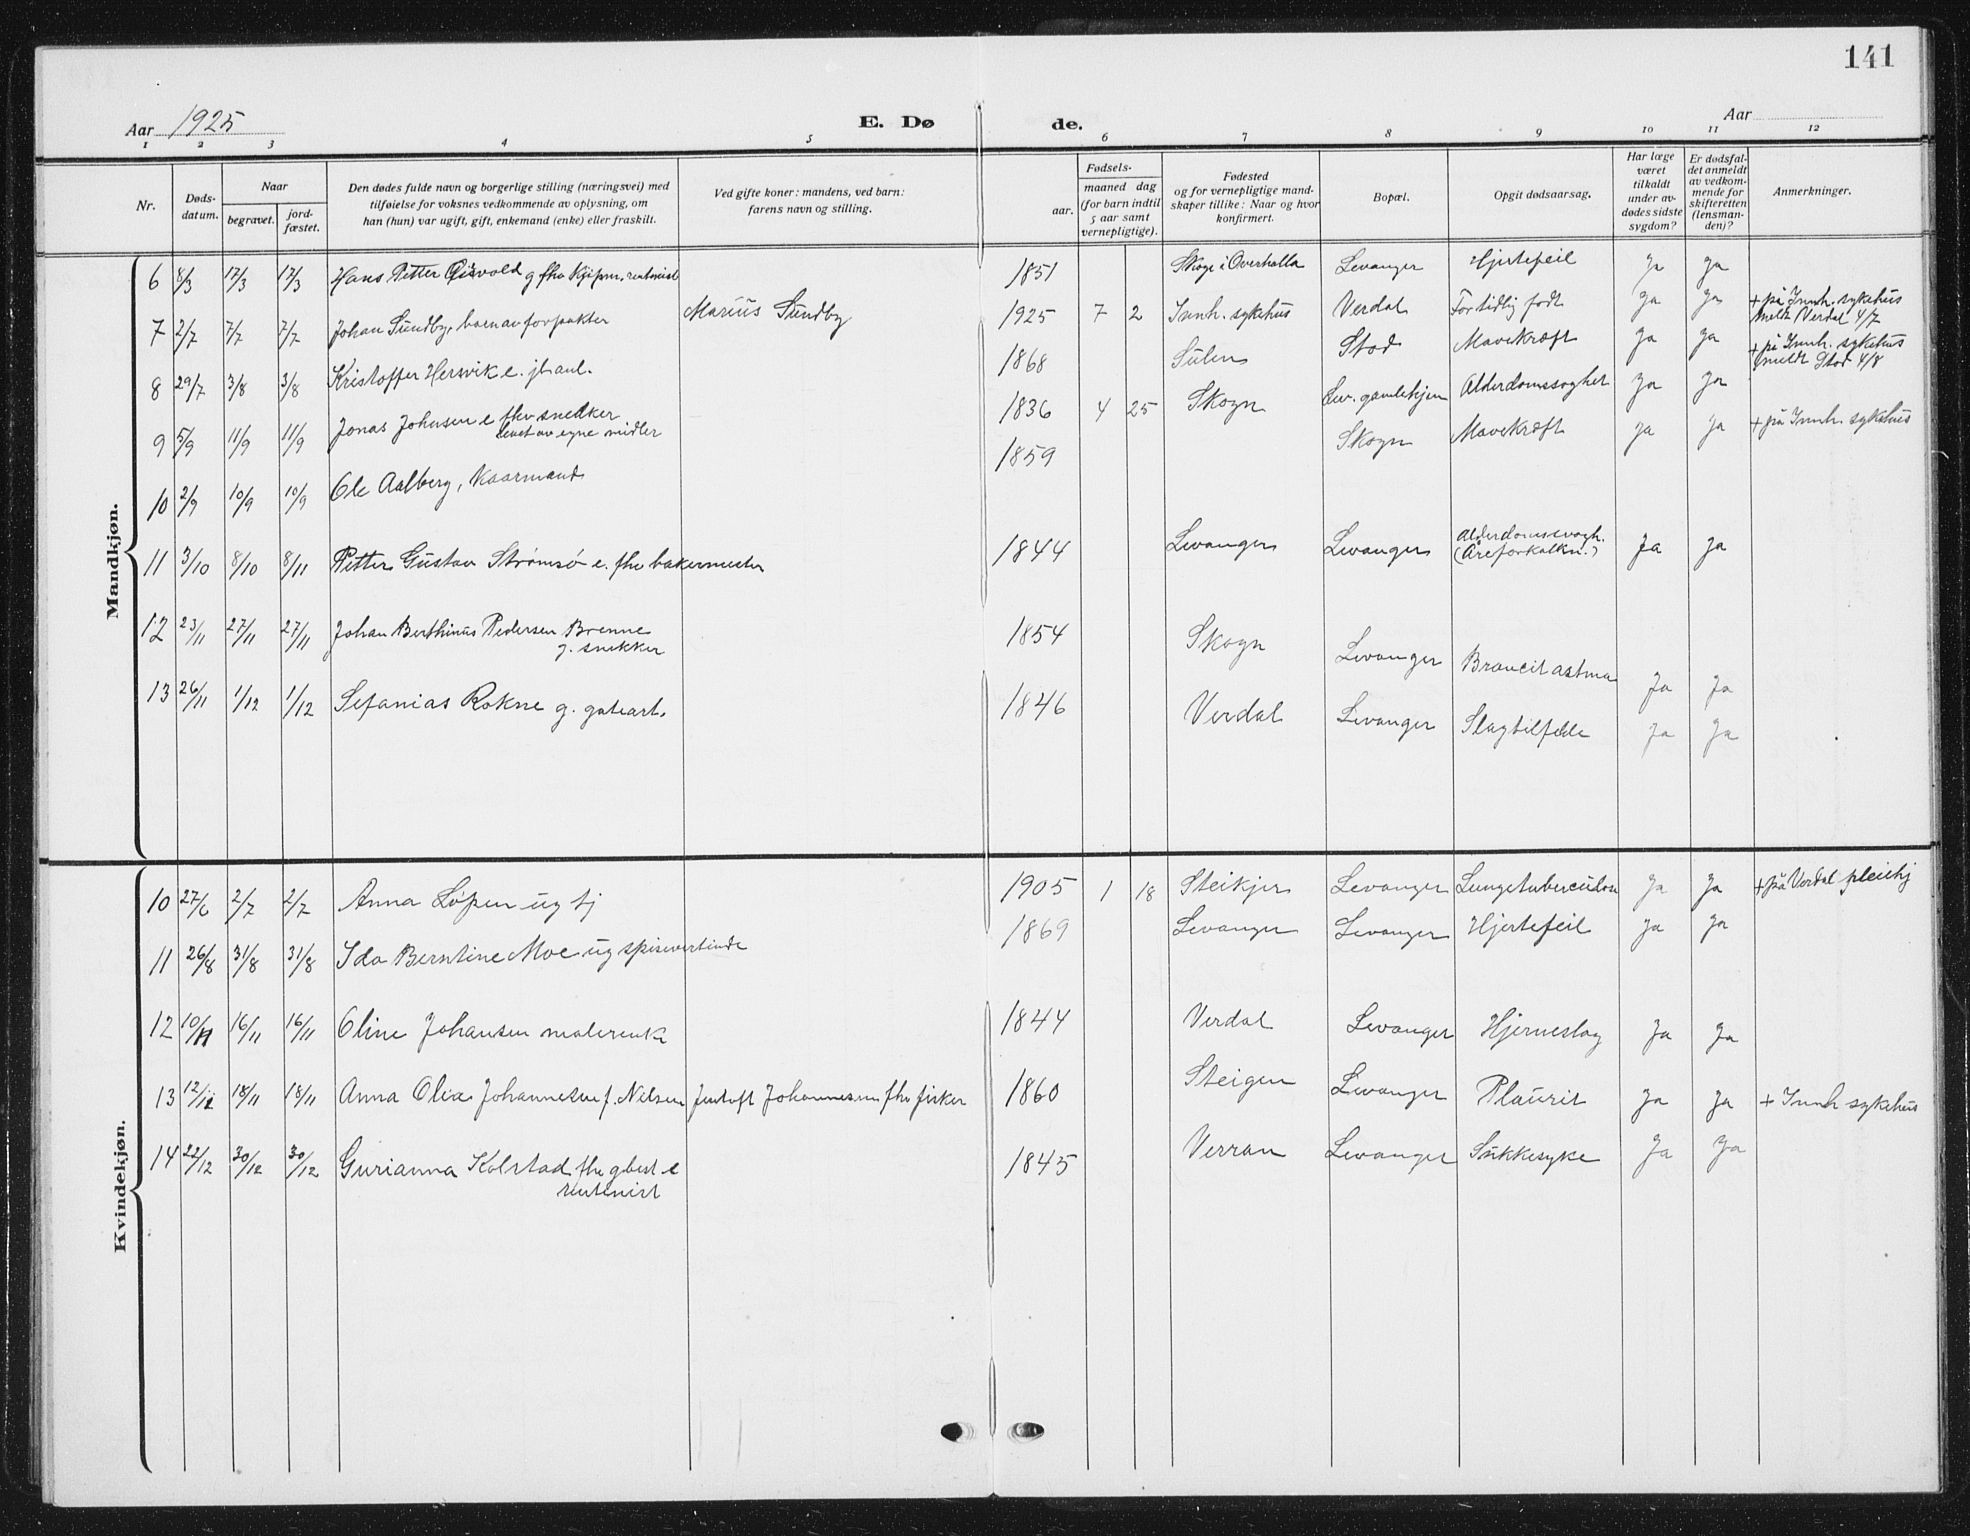 141
Aar 1925
E. Dø de.
Aar
1 2 3 4 5 6 7 8 9 10 11 12
Nr.
Døds-
datum.
Naar
begravet.
jord-
fæstet.
Den dødes fulde navn og borgerlige stilling (næringsvei) med
tilføielse for voksnes vedkommende av oplysning, om
han (hun) var ugift, gift, enkemand (enke) eller fraskilt.
Ved gifte koner: mandens, ved barn:
farens navn og stilling.
Fødsels-
aar.
maaned dag
(for barn indtil
5 aar samt
vernepligtige).
Fødested
og for vernepligtige mand-
skaper tillike: Naar og hvor
konfirmert.
Bopæl.
Opgit dødsaarsag.
Har læge
været
tilkaldt
under av-
dødes sidste
sygdom?
Er dødsfal-
det anmeldt
av vedkom-
mende for
skifteretten
(lensman-
den)?
Anmerkninger.
Mandkjøn.
6 8/3 17/3 17/3 Hans Petter g fhv kjøpm. rentenist 1851 Skage i Overhalla Levanger Hjertefeil Ja Ja
7 2/7 7/7 7/7 Johan Sundby, barn av forpakter Marius Sundby 1925 7 2 Innh. sykehus Verdal For tidlig født Ja Ja + på Innh. sykehus
meldt Verdal 4/7
8 29/7 3/8 3/8 Kristoffer Hersvik e. 1868 Sulen Stod Mavekræft Ja Ja + på Innh. sykehus
meldt Stod 4/8
9 5/9 11/9 11/9 Jonas Johnsen e fhv snedker
levet av egne midler 1836 4 25 Skogn Lev. gamlehjem Alderdomssvaghet Ja Ja
10 2/9 10/9 10/9 Ole Aalberg, Kaarmand 1859 Skogn Mavekræft Ja Ja + på Innh. sykehus
11 3/10 8/10 8/11 Petter Gustav Strømsø e. fhv bakermester 1844 Levanger Levanger Alderdomssvagh.
(Åreforkalkn.) Ja Ja
12 23/11 27/11 27/11 Johan Berthinus Pedersen Brenne
g. snekker 1854 Skogn Levanger Broncit astma Ja Ja
13 26/11 1/12 1/12 Sefanias Rokne g. gatearb. 1846 Verdal Levanger Slagtilfelle Ja Ja
Kvindekjøn.
10 27/6 2/7 2/7 Anna Løpen ug tj 1905 1 18 Steikjer Levanger Lungetuberculose Ja Ja + på Verdal pleiehj
11 26/8 31/8 31/8 Ida Berntine Moe ug spisevertinde 1869 Levanger Levanger Hjertefeil Ja Ja
12 10/11 16/11 16/11 Oline Johansen malerenke 1844 Verdal Levanger Hjerneslag Ja Ja
13 12/11 18/11 18/11 Anna Olia Johannesen f. Nilsen Jentoft Johannesen fhv fisker 1860 Steigen Levanger Plaurit Ja Ja + Innh sykehus
14 22/12 30/12 30/12 Gurianna Kolstad fhv gbest e
rentenist 1845 Verran Levanger Sukkesyke Ja Ja